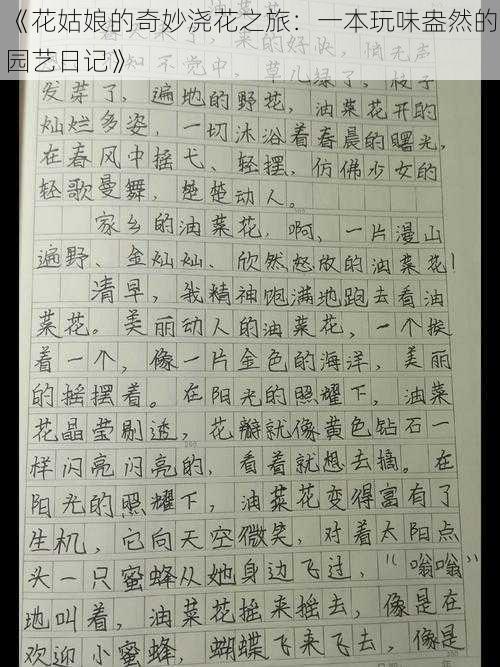 《花姑娘的奇妙浇花之旅：一本玩味盎然的
园艺日记》
春天来了，春天来的好快，悄无声
知不觉中，草儿绿了，枝子
发芽了，遍地的野花，油菜花开的
灿烂多姿，一切沐浴着春晨的曙光，
在春风中摇弋、轻摆，仿佛少女的
轻歌曼舞，楚楚动人。
家乡的油菜花，啊，一片漫山
遍野、金灿灿、欣然怒放的油菜花！
清早，我精神饱满地跑去看油
菜花。美丽动人的油菜花，一个挨
着一个，像一片金色的海洋，美丽
的摇摆着。在阳光的照耀下，油菜
花晶莹剔透，花瓣就像黄色钻石一
样闪亮闪亮的，看着就想去摘。在
阳光的照耀下，油菜花变得富有了
生机，它向天空微笑，对着太阳点
头一只蜜蜂从她身边飞过，“嗡嗡”
地叫着，油菜花摇来摇去，像是在
欢迎小蜜蜂，蝴蝶飞来飞去，像是